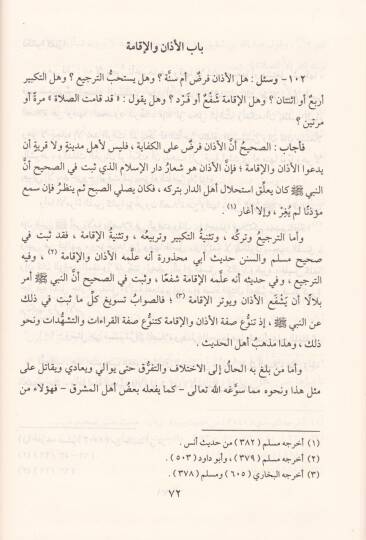 باب الأذان والإقامة
١٠٢- وسئل : هل الأذان فرضٌ أم سنَّة ؟ وهل يستحبُّ الترجيع ؟ وهل التكبير
أربعٌ أو اثنتان ؟ وهل الإقامة شَفْعٌ أو فَرْد ؟ وهل يقول : « قد قامت الصلاة » مرةً أو
مرتين ؟
فأجاب : الصحيحُ أنَّ الأذان فرضٌ على الكفاية ، فليس لأهل مدينةٍ ولا قريةٍ أن
يدعوا الأذان والإقامة ؛ فإنَّ الأذان هو شعارُ دار الإسلام الذي ثبت في الصحيح أنَّ
النبي ﷺ كان يعلِّق استحلال أهل الدار بتركه ، فكان يصلي الصبح ثم ينظرُ فإن سمع
مؤذنًا لم يُغِرْ ، وإلا أغار (١) .
وأما الترجيعُ وتركُه ، وتثنيةُ التكبير وتربيعُه ، وتثنيةُ الإقامة ، فقد ثبت في
صحيح مسلم والسنن حديث أبي محذورة أنه علَّمه الأذان والإقامة (٢) ، وفيه
الترجيع ، وفي حديثه أنه علَّمه الإقامة شفعًا ، وثبت في الصحيح أنَّ النبي ﷺ أمر
بلالًا أن يَشْفَع الأذان ويوتر الإقامة (٣) ؛ فالصوابُ تسويغ كلِّ ما ثبت في ذلك
عن النبي ﷺ ، إذ تنوُّع صفة الأذان والإقامة كتنوُّع صفة القراءات والتشهُّدات ونحو
ذلك ، وهذا مذهبُ أهل الحديث .
وأما من بلغ به الحالُ إلى الاختلاف والتفرُّق حتى يوالي ويعادي ويقاتل على
مثل هذا ونحوه مما سوَّغه الله تعالى - كما يفعله بعضُ أهل المشرق - فهؤلاء من
(١) أخرجه مسلم (٣٨٢) من حديث أنس .
(٢) أخرجه مسلم (٣٧٩) ، وأبو داود (٥٠٣) .
(٣) أخرجه البخاري (٦٠٥) ومسلم (٣٧٨) .
٧٢